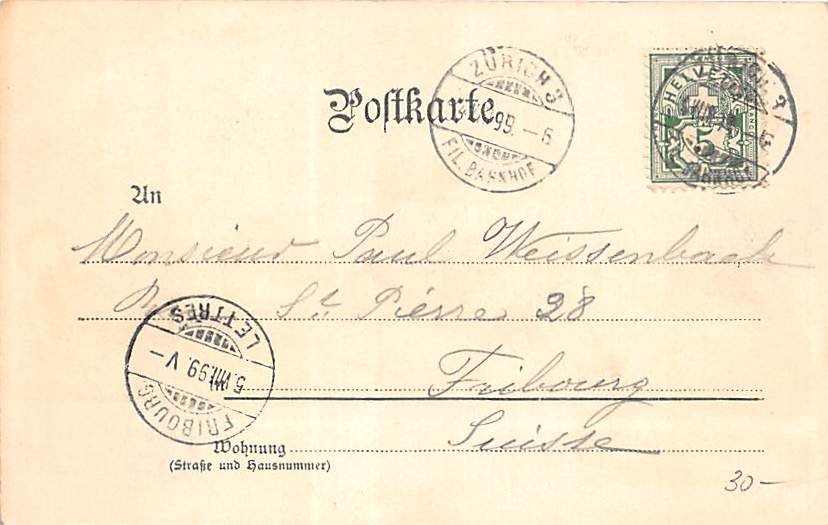 Postkarte
ZÜRICH 3
99. – 6
FIL. BAHNHOF
HELVETIA
5
An
Monsieur Paul Weissenbach
St. Pierre 28
LETTRES
5.VIII.99. V –
FRIBOURG
Fribourg
Suisse
Wohnung
(Straße und Hausnummer)
30 –